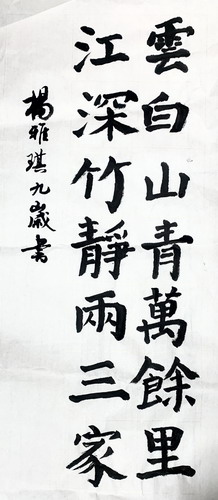 雲白山青萬餘里
江深竹靜兩三家
楊雅琪九歲書